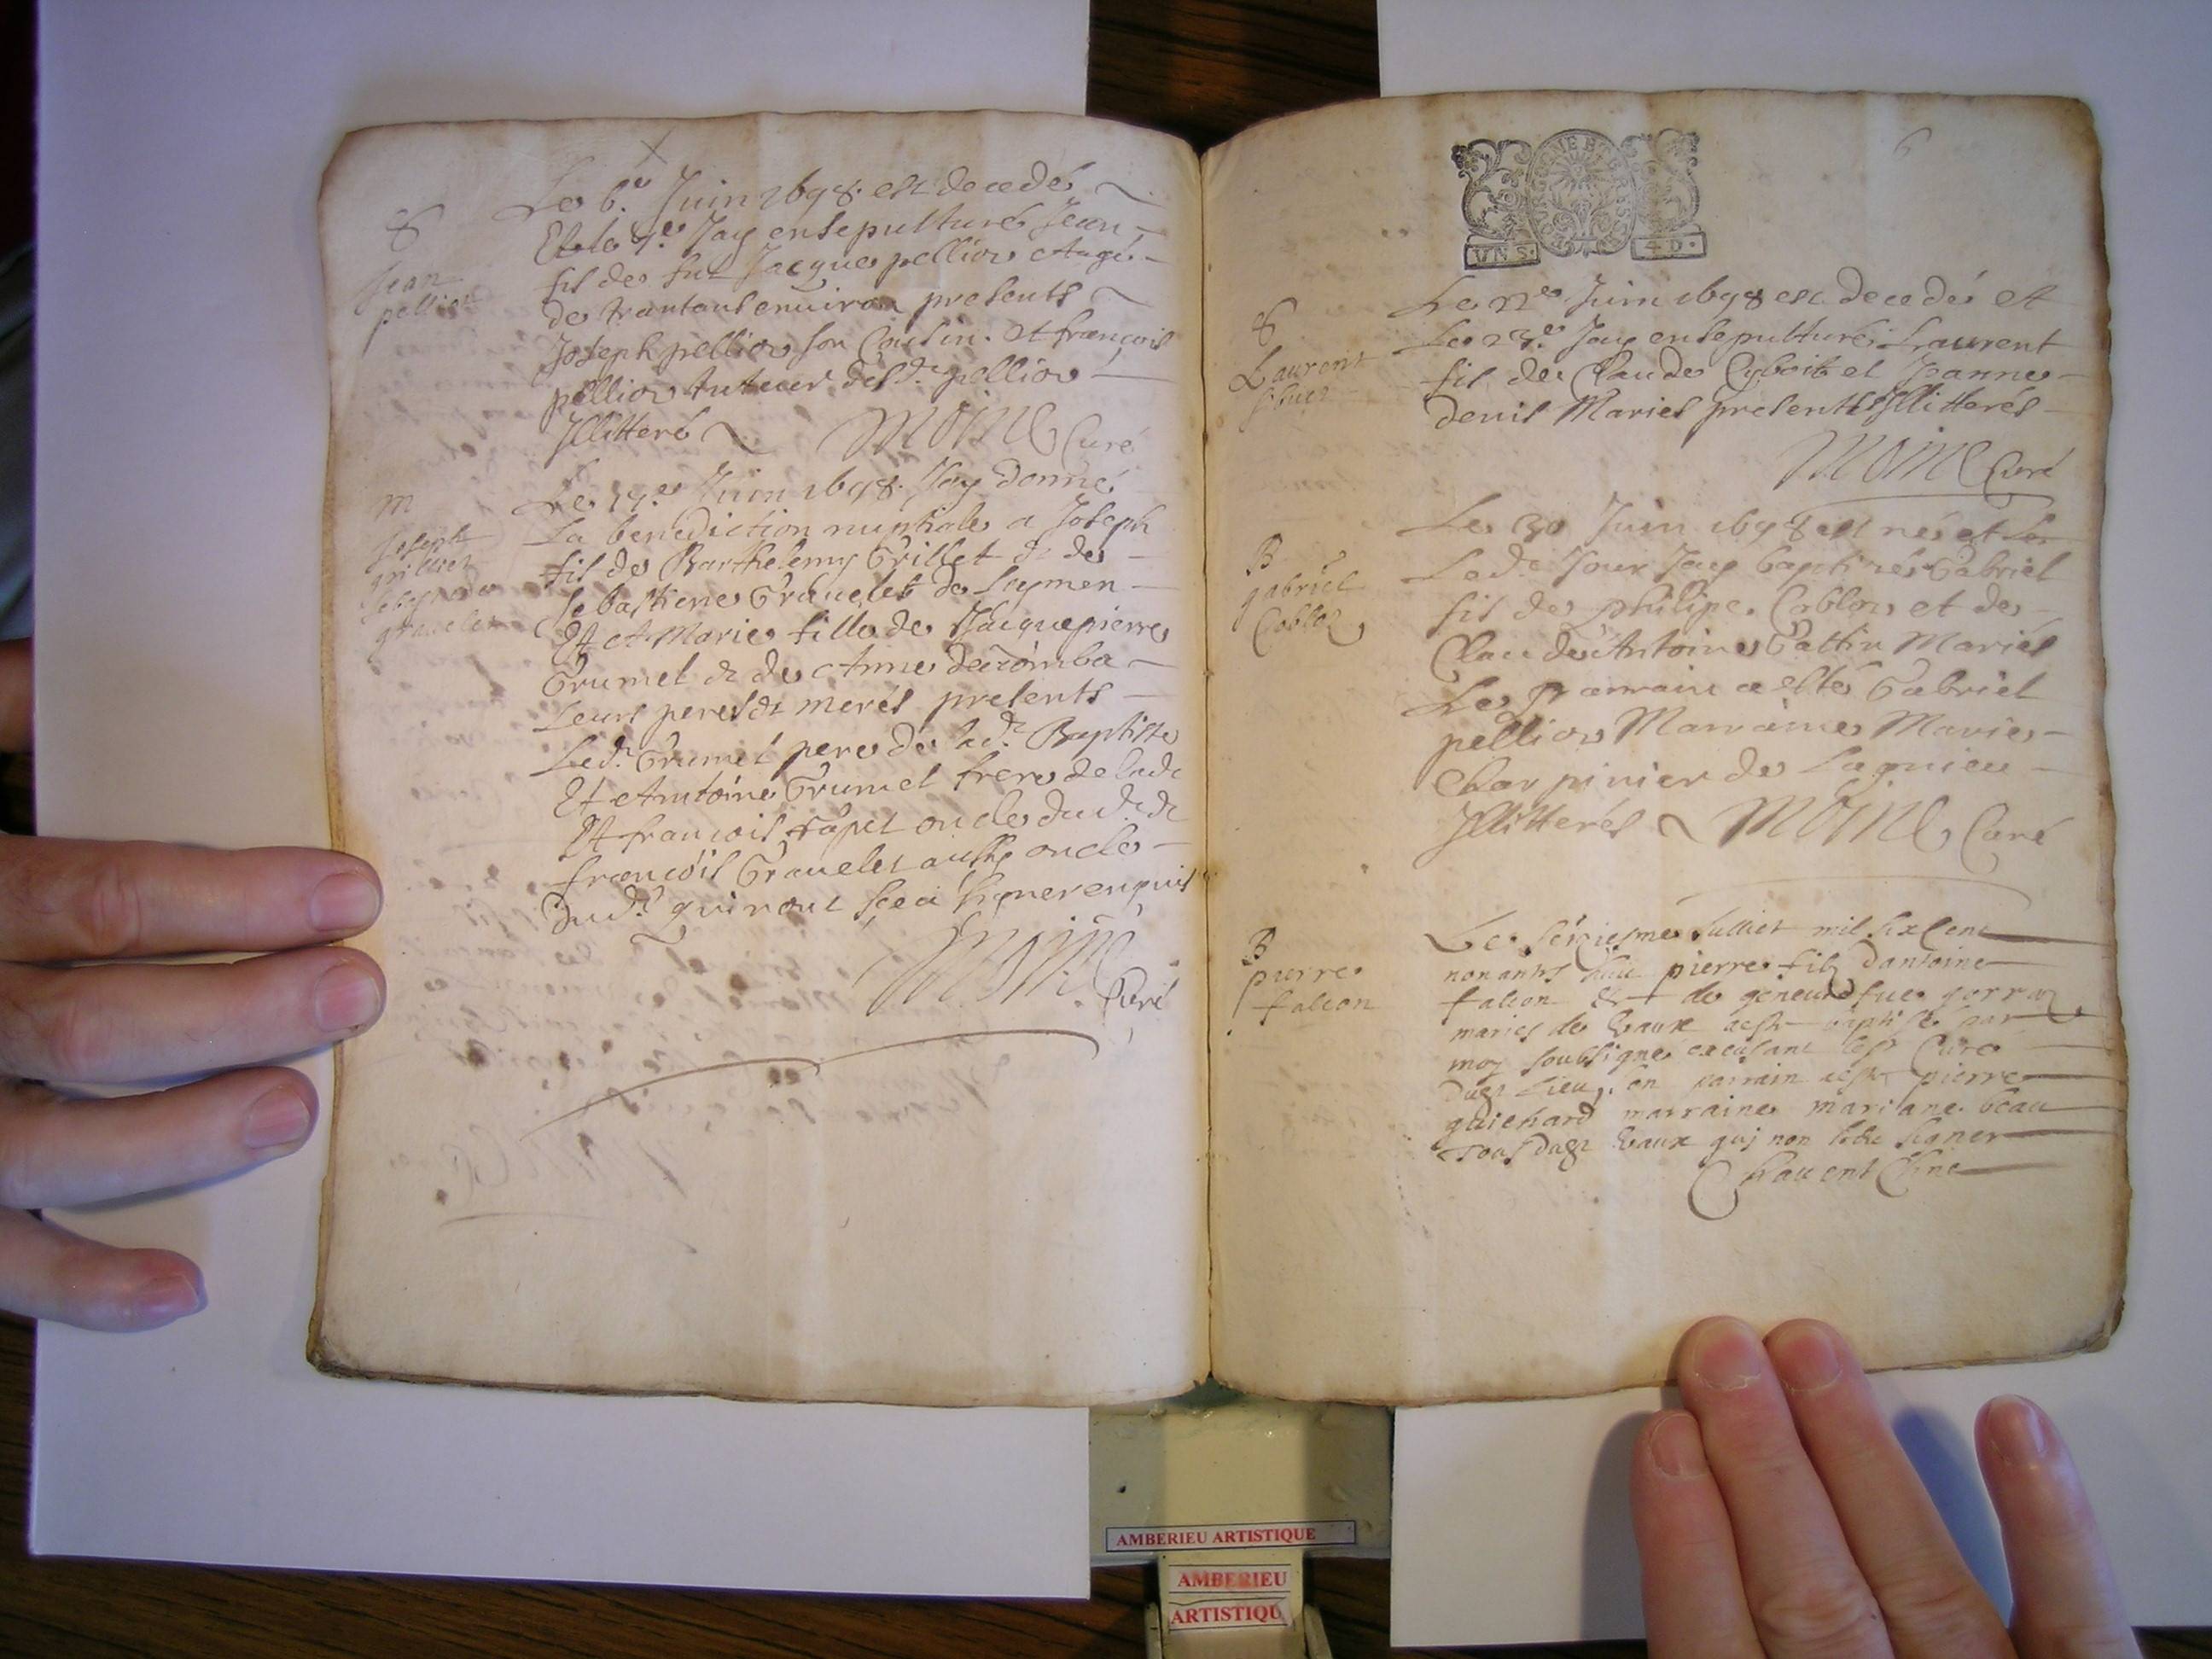 S
Jean
pellior
Le 6.e Juin 1698. est decedé
Et le 7.e Jay ensepulturé Jean
fil de fut Jacque pellior Aagé
de trantans environ presents
Joseph pellior son Cousin. et françois
pellior tuteur desd. pellior
Illitteré Moine Curé
m
Joseph
grillet
gravelet
Le 17.e Juin 1698. Jay donné
La benediction nuptiale a Joseph
fil de Barthelemy Grillet & de
Sebastiene Gravelet de Leymen
Et a Marie fille de Jacquepierre
Grumel & de Anne
Leurs peres & merés presents
Led. Grumel pere de lad.
Et Antoine Grumel frere de lad.
Et françois oncle dud. &
françois Gravelet aussy oncle
dud. qui nont sceu signer enquis
Moine
Curé
6
BOURGOGNE BRESSE
UN S. 4 D.
S
Laurent
Le 22e Juin 1698 est decedé et
Le 23.e Jay ensepulturé Laurent
fil de Claude et Jeanne
denis Mariés presents Illitterés
Moine Curé
B
gabriel
Coblor
Le 30 Juin 1698 est né et
Led. Jour Jay baptisé Gabriel
fil de philipe Coblor et de
Claude Antoine Gattin Mariés
Le parrain a esté Gabriel
pellior Marraine Marie
Charpinier de Lagnieu
Illitterés Moine Curé
B
pierre
falcon
Le sezieme Julliet mil six cent
nonante huit pierre filz dantoine
falcon & de
mariés de Vaux a esté baptisé par
moy soubsigné Curé
dudt Lieu, son parrain a esté pierre
guichard marraine mariane beau
tous dudt Vaux qui non sceu signer